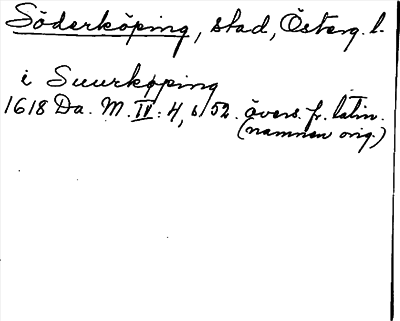 Söderköping, stad, Österg. l.
i Suurköping
1618 Da. M. IV: 4, s 52. övers. fr. latin.
(namnen orig.)